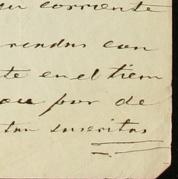 su corriente
rendas con
te en el tiem
ou por de
tan suscritas